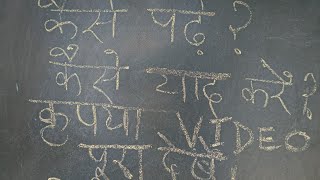 कैसे पढ़े ?
कैसे याद करें ?
कृपया VIDEO
पूरा देखें !